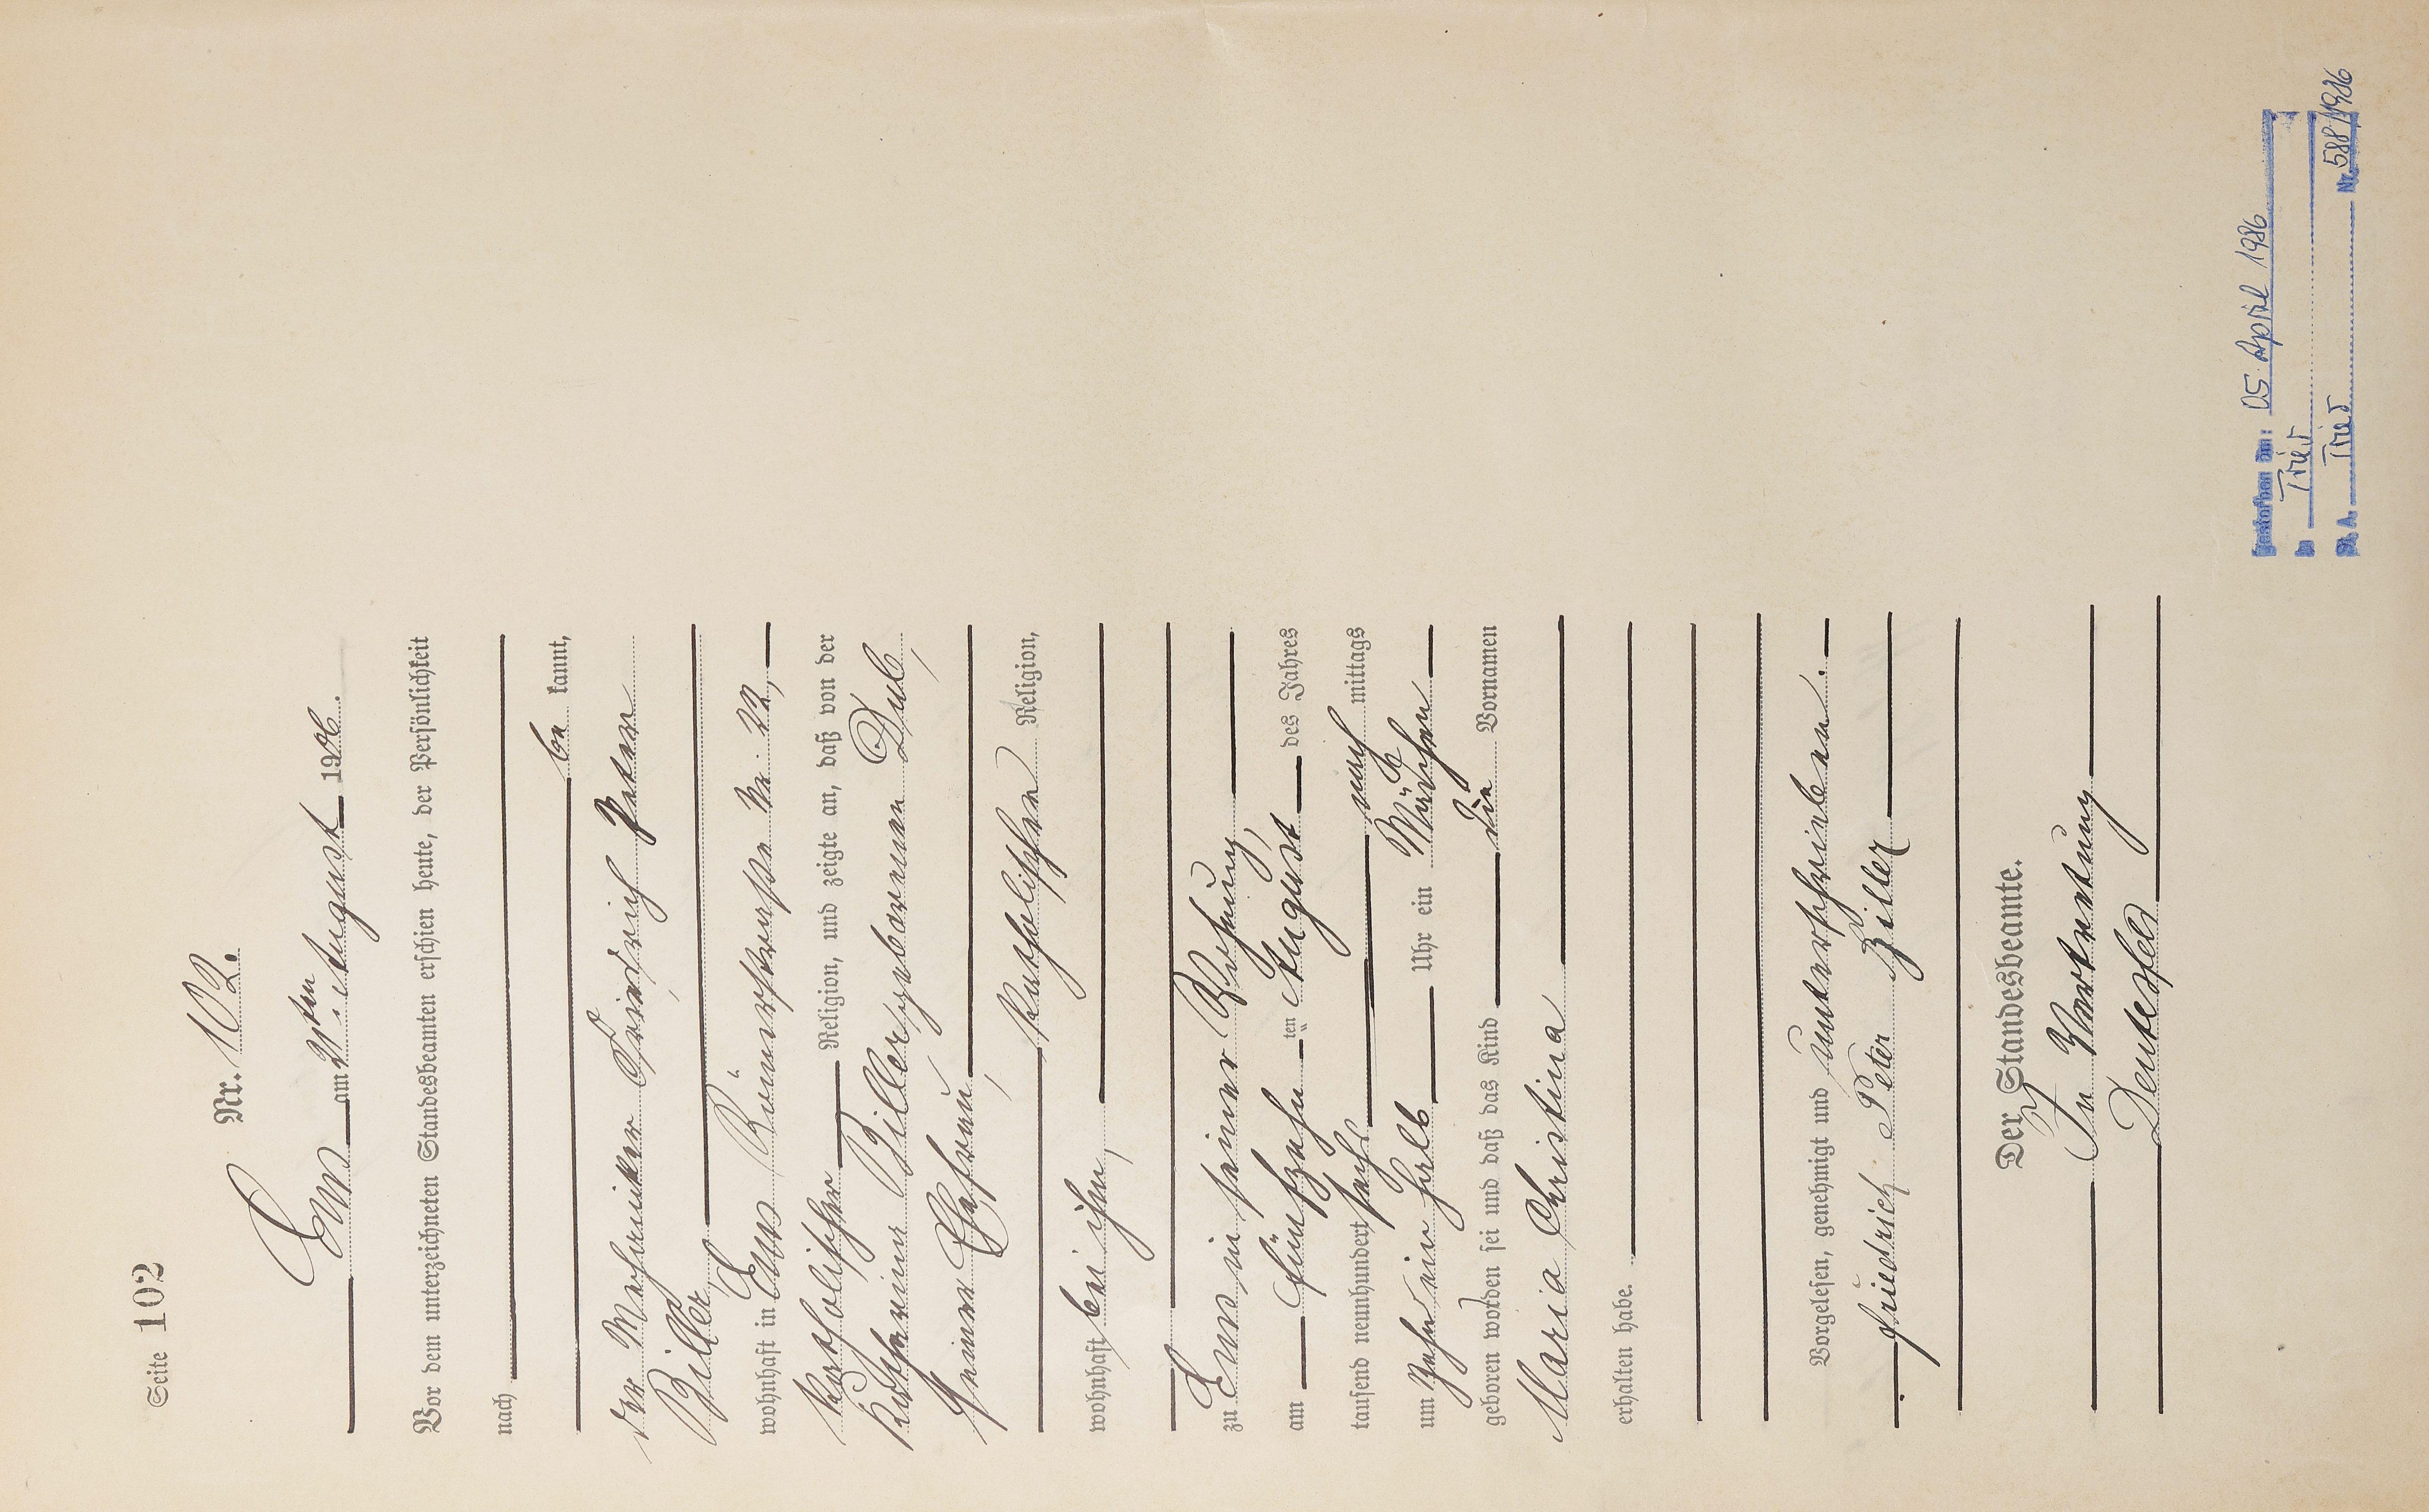 Seite 102
Nr. 102.
Ems am 21ten August 1906.
Vor dem unterzeichneten Standesbeamten erschien heute, der Persönlichkeit
nach
be kannt,
der Mechaniker Friedrich Peter
Ziller
wohnhaft in Ems Römerstrasse Nr. 22,
katholischer Religion, und zeigte an, daß von der
Katharina Ziller geborenen
seiner Ehefrau,
katholischer Religion,
wohnhaft bei ihm,
zu Ems in seiner Wohnung,
am fünfzehn ten August des Jahres
tausend neunhundert sechs nach mittags
um zehn ein halb Uhr ein Mädchen
geboren worden sei und daß das Kind die Vornamen
Maria Christina
erhalten habe.
Vorgelesen, genehmigt und unterschrieben.
Friedrich Peter Ziller
Der Standesbeamte.
In Vertretung
Gestorben am: 05. April 1986
in Trier
St. A. Trier Nr. 588/1986